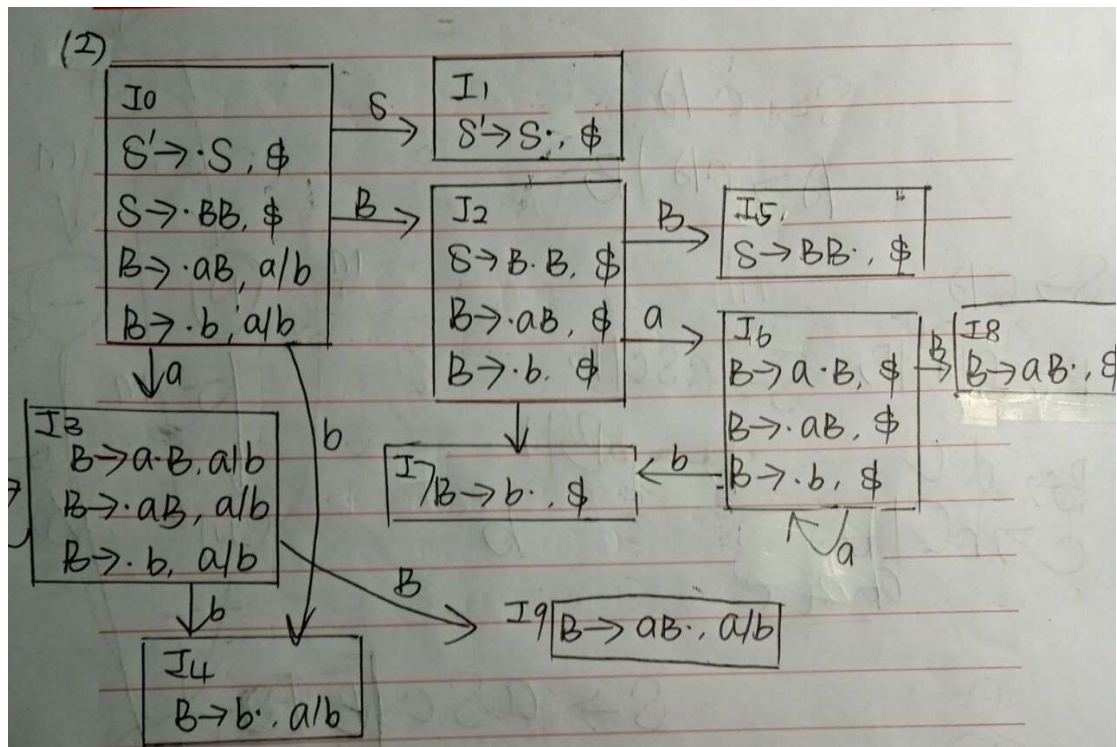 (2)
I0
S'→·S, $
S→·BB, $
B→·aB, a/b
B→·b, a/b
S
I1
S'→S·, $
B
I2
S→B·B, $
B→·aB, $
B→·b. $
B
I5
S→BB·, $
a
I6
B→a·B, $
B→·aB, $
B→·b, $
B
I8
B→aB·, $
a
b
I3
B→a·B, a/b
B→·aB, a/b
B→·b, a/b
I7
B→b·, $
b
a
B
I9 B→aB·, a/b
b
I4
B→b·, a/b